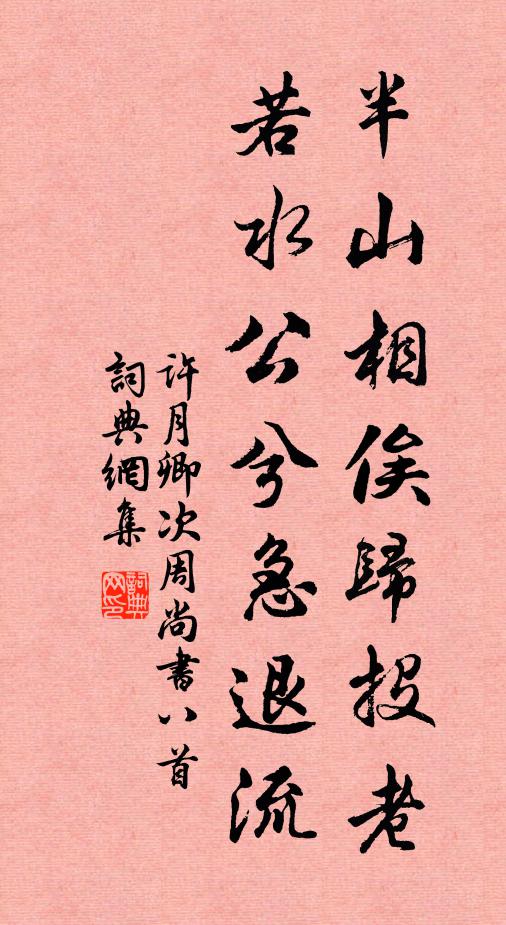 半山相俟歸投老
若水公兮急退流
許月卿次周尚書八首
詞典網集
詞典网印